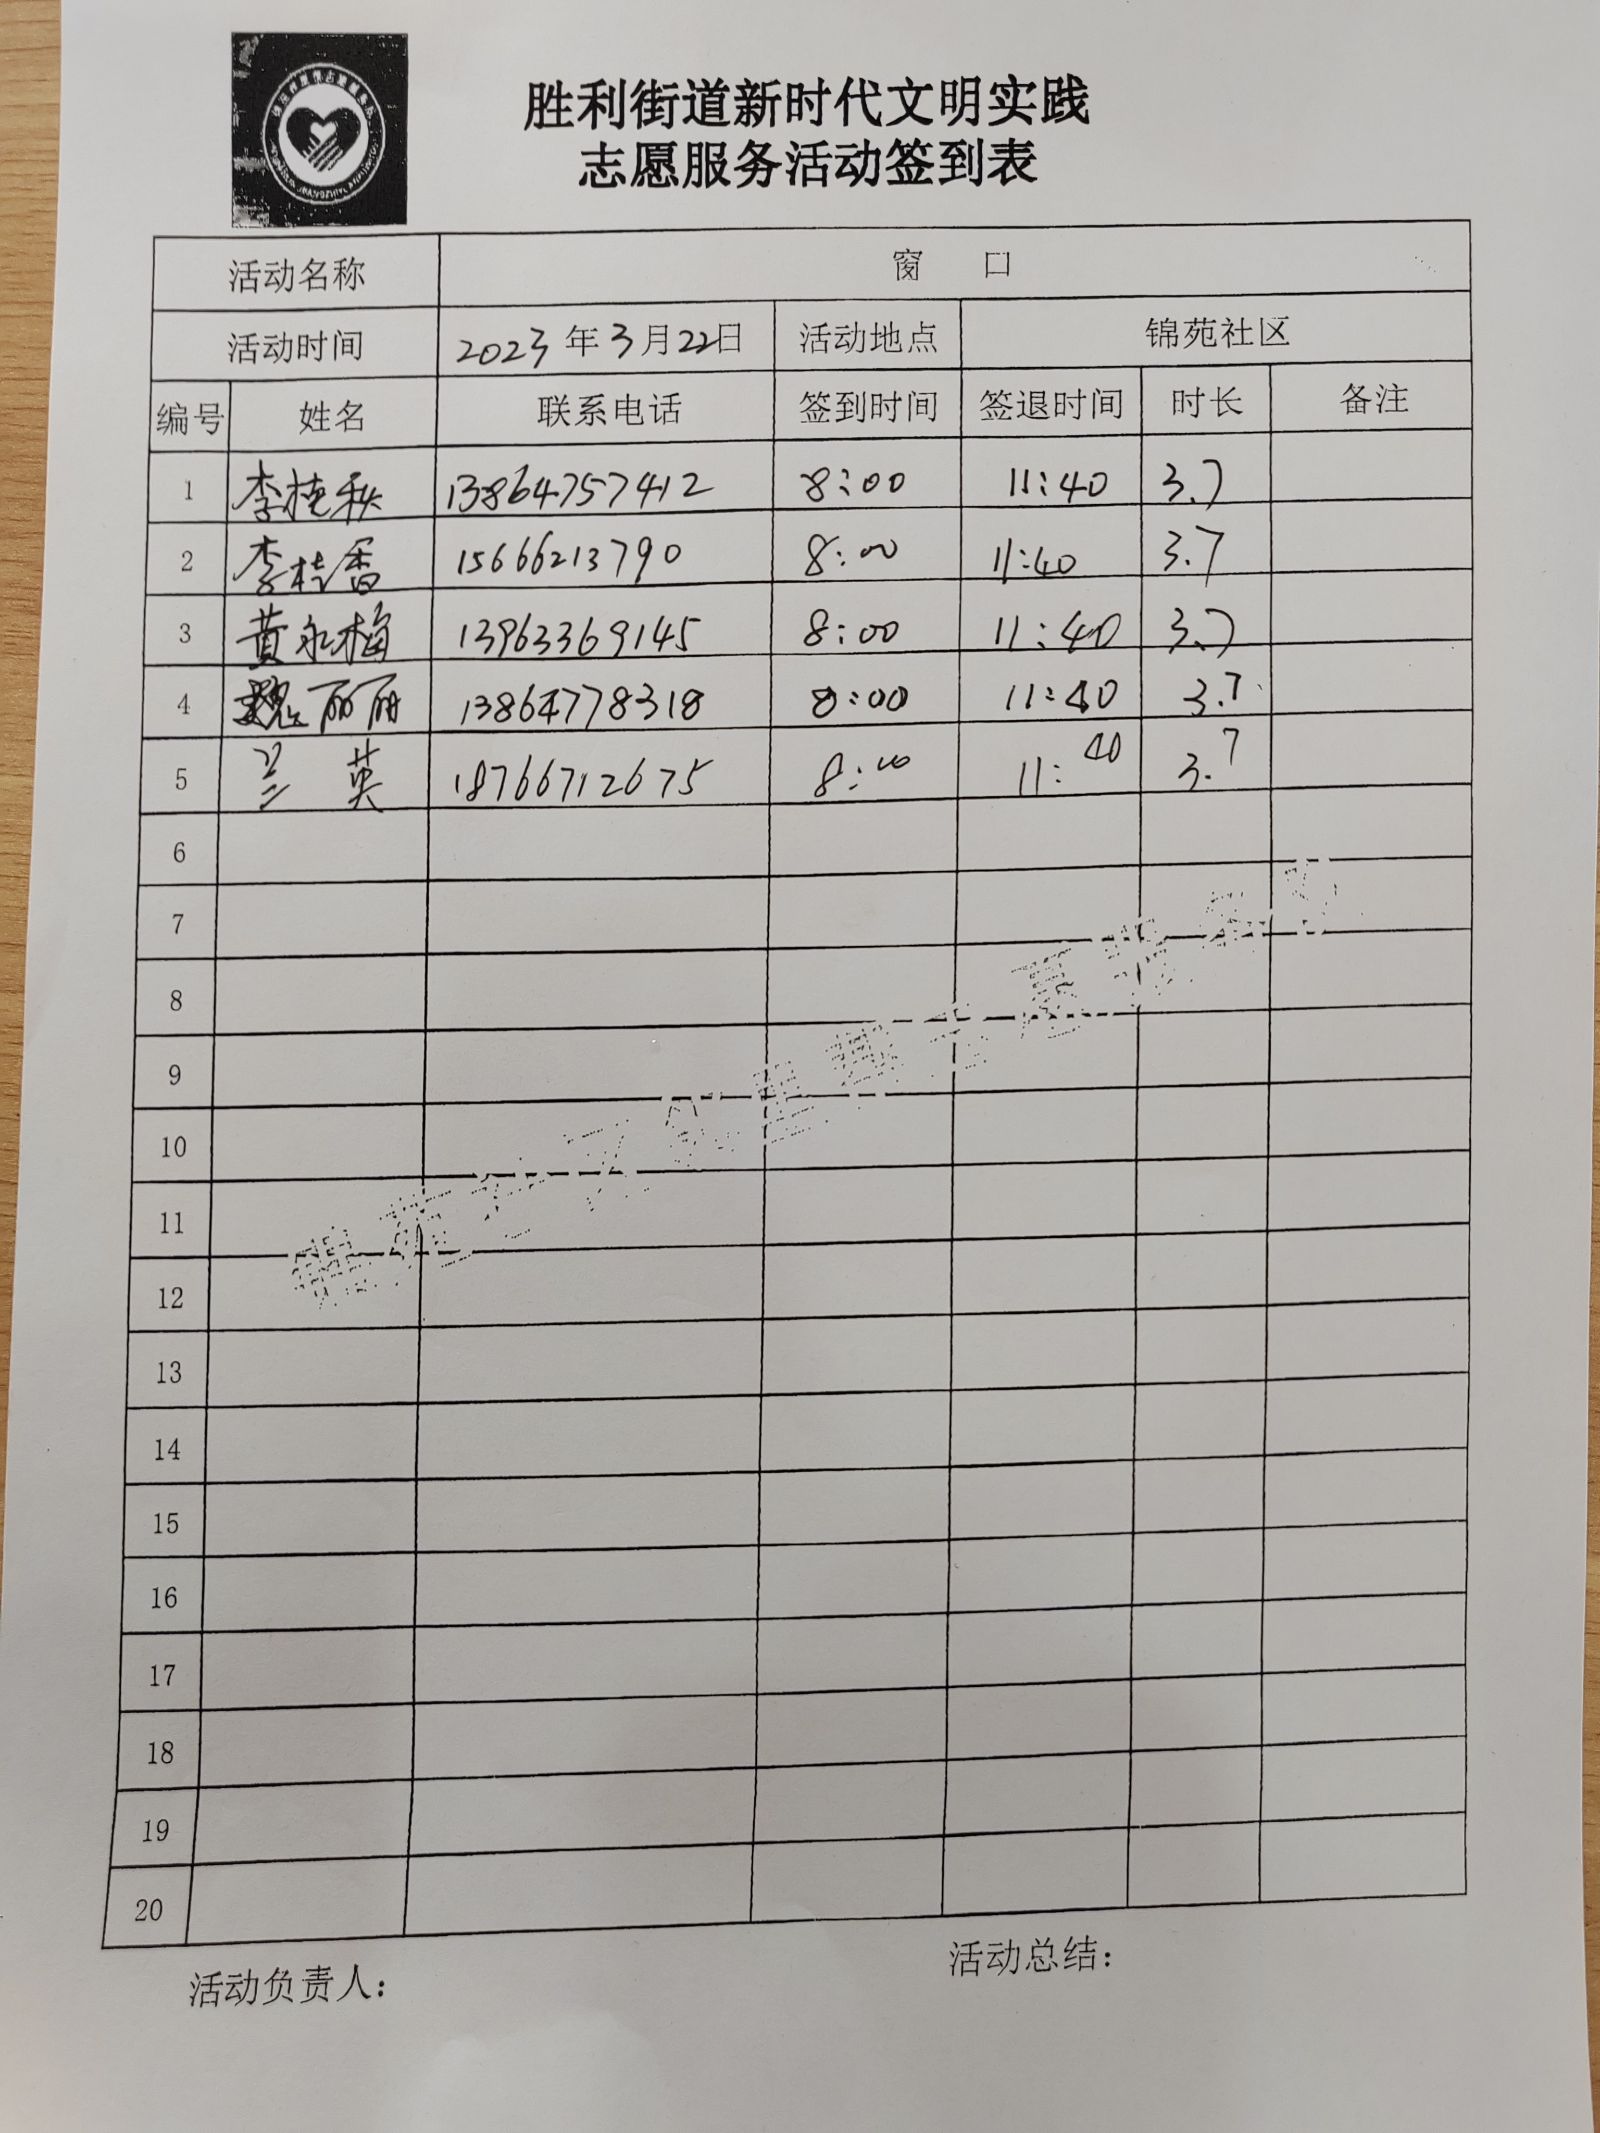 胜利街道新时代文明实践
志愿服务活动签到表
活动名称 窗 口
活动时间 2023年3月22日 活动地点 锦苑社区
编号 姓名 联系电话 签到时间 签退时间 时长 备注
1 李桂秋 13864757412 8:00 11:40 3.7
2 李桂香 15666213790 8:00 11:40 3.7
3 黄永梅 13963369145 8:00 11:40 3.7
4 魏丽丽 13864778318 8:00 11:40 3.7
5 兰英 18766712675 8:00 11:40 3.7
6
7
8
9
10
11
12
13
14
15
16
17
18
19
20
活动负责人: 活动总结: